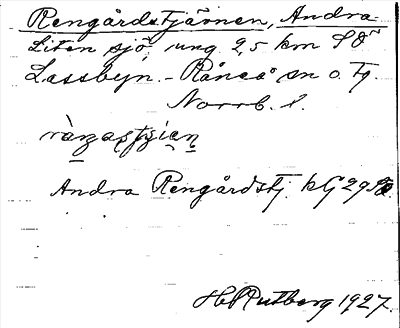 Rengårdstjärnen, Andra
Liten sjö, ung. 2,5 km SÖ
Lassbyn. - Råneå sn o. tg
Norrb. l.
Andra Rengårdstj. kG
H Rutberg 1927.